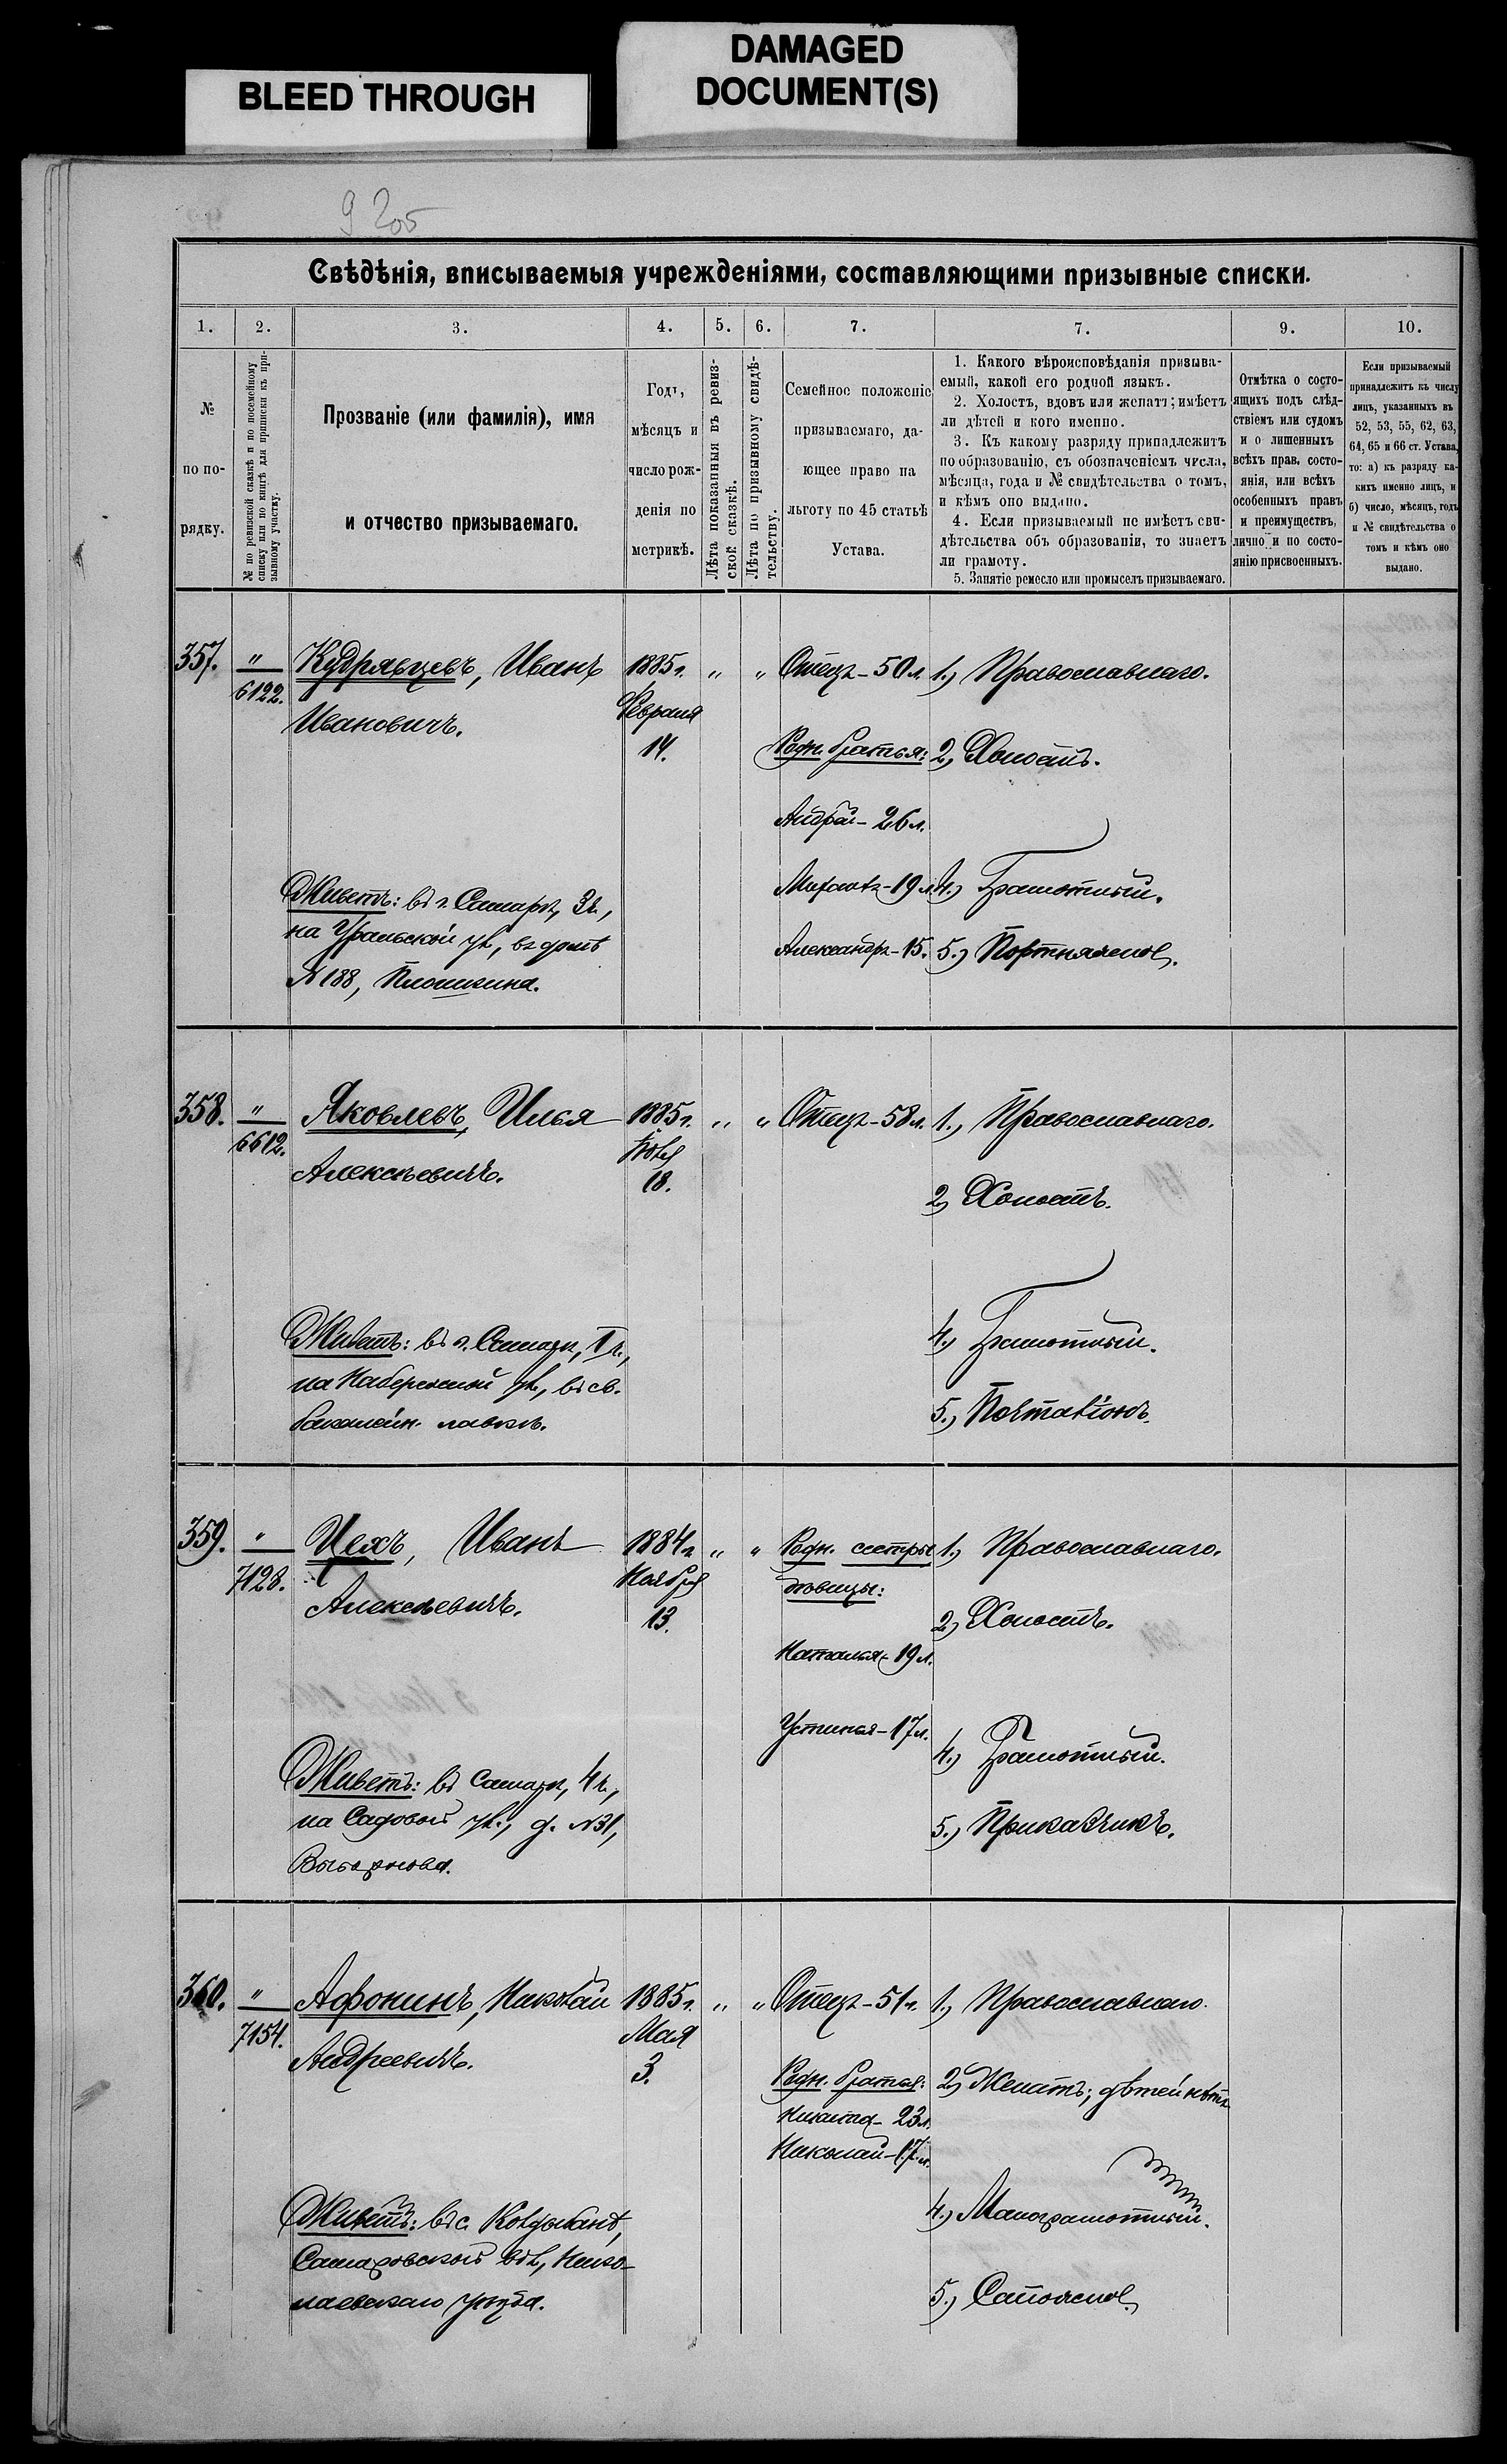 BLEED THROUGH
DAMAGED
DOCUMENT(S)
9 205
Свѣдѣнія, вписываемыя учрежденіями, составляющими призывные списки.
1. 2. 3. 4. 5. 6. 7. 7. 9. 10.
№
по по-
рядку.
№ по ревизской сказкѣ и по посемейному
списку или по книгѣ для приписки къ при-
зывному участку.
Прозваніе (или фамилія), имя
и отчество призываемаго.
Годъ,
мѣсяцъ и
число рож-
денія по
метрикѣ.
Лѣта показанныя въ ревиз-
ской сказкѣ.
Лѣта по призывному свидѣ-
тельству.
Семейное положеніе
призываемаго, да-
ющее право на
льготу по 45 статьѣ
Устава.
1. Какого вѣроисповѣданія призыва-
емый, какой его родной языкъ.
2. Холостъ, вдовъ или женатъ; имѣетъ
ли дѣтей и кого именно.
3. Къ какому разряду принадлежитъ
по образованію, съ обозначеніемъ числа,
мѣсяца, года и № свидѣтельства о томъ,
и кѣмъ оно выдано.
4. Если призываемый не имѣетъ сви-
дѣтельства объ образованіи, то знаетъ
ли грамоту.
5. Занятіе ремесло или промыселъ призываемаго.
Отмѣтка о состо-
ящихъ подъ слѣд-
ствіемъ или судомъ
и о лишенныхъ
всѣхъ прав. состо-
янія, или всѣхъ
особенныхъ правъ
и преимуществъ,
лично и по состо-
янію присвоенныхъ.
Если призываемый
принадлежитъ къ числу
лицъ, указанныхъ въ
52, 53, 55, 62, 63,
64, 65 и 66 ст. Устава,
то: а) къ разряду ка-
кихъ именно лицъ, и
б) число, мѣсяцъ, годъ
и № свидѣтельства о
томъ и кѣмъ оно
выдано.
357. " 6122.
Кудрявцевъ, Иванъ
Ивановичъ.
Живетъ: въ г. Самарѣ, 3 ч.,
на Уральской ул., въ домѣ
№ 188, Плошкина.
1885 г.
Февраля
14.
" "
Отецъ - 50 л.
Родн. братья:
Андрей - 26 л.
Михаилъ - 19 л.
Александръ - 15.
1.) Православнаго.
2.) Холостъ.
4.) Грамотный.
5.) Портняжной.
358. " 6612.
Яковлевъ, Илья
Алексѣевичъ.
Живетъ: въ г. Самарѣ, 1 ч.,
на Набережной ул., въ св.
бакалейн. лавкѣ.
1885 г.
Іюля
18.
" "
Отецъ - 58 л.
1.) Православнаго.
2.) Холостъ.
4.) Грамотный.
5.)
359. " 7128.
Чехъ, Иванъ
Алексѣевичъ.
Живетъ: въ Самарѣ, 4 ч.,
на Садовой ул., д. № 31,
1884 г.
Ноября
13.
" "
Родн. сестры
дѣвицы:
Наталья - 19 л.
Устинья - 17 л.
1.) Православнаго.
2.) Холостъ.
4.) Грамотный.
5.) Прикащикъ.
360. " 7154.
Афонинъ, Николай
Андреевичъ.
Живетъ: въ с. Колдыбанѣ,
вол., Нико-
лаевскаго уѣзда.
1885 г.
Мая
3.
" "
Отецъ - 51 г.
Родн. братья:
Никита - 23 л.
Николай - 17 л.
1.) Православнаго.
2.) Женатъ; дѣтей нѣтъ
4.) Малограмотный.
5.) Сапожной.